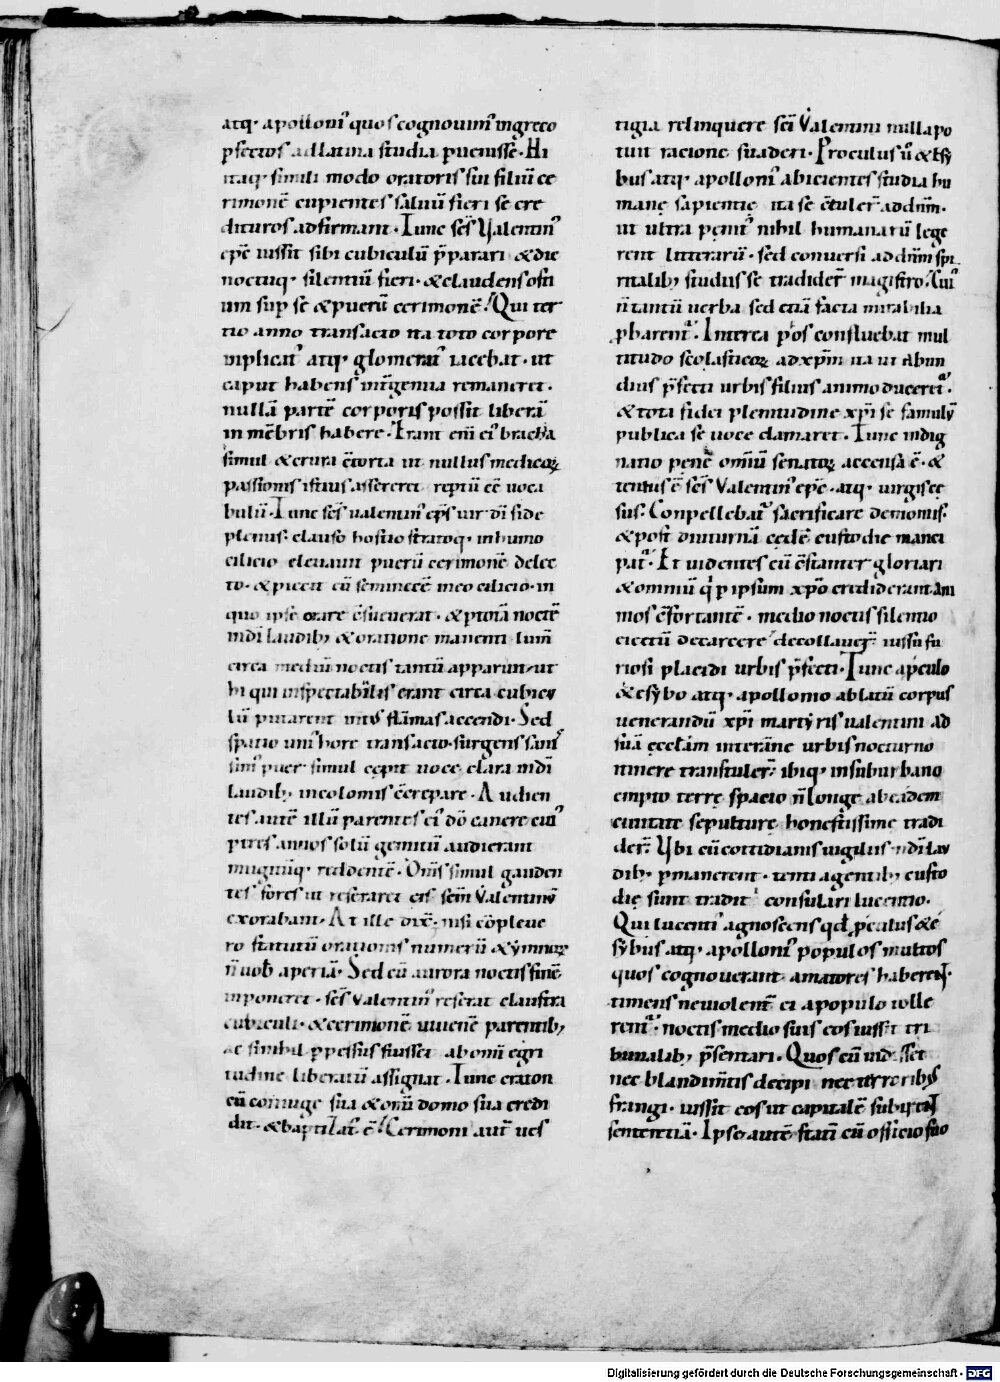 atq; apolloni᷒ quos cognouim᷒ ingreco
p̄fectos adlatina studia ꝑuenisse. Hi
itaq; simili modo oratoris sui filiū ce
rimonē cupientes saluū fieri se cre
dituros adfirmant. Tunc sc̄s Valentin᷒
ep̄c iussit sibi cubiculū p̄parari & die
noctuq; silentiū fieri. & claudens osti
um sup se & puerū cerimonē. Qui ter
tio anno transacto ita toto corpore
inplicat᷒ atq; glomerat᷒ iacebat. ut
caput habens int̄ genua remaneret.
nullā partē corporis possit liberā
in mēbris habere. Erant eni ei᷒ brachia
simul & crura c̄torta ut nullus medicoꝝ
passionis isti᷒ assereret reptū eē uoca
bulū. Tunc sc̄s ualentin᷒ ep̄s uir dī fide
plenus. clauso hostio stratoq; inhumo
cilicio eleuauit puerū cerimonē delec
to. & piecit eū seminecē in eo cilicio. in
quo ipse orare c̄sueuerat. & ꝑtotā noctē
indī laudib; & oratione manenti lum̄
circa mediū noctis tantū apparuit ut
hi qui inspectabiles erant circa cubicu
lū putarent intus flāmas accendi. Sed
spatio uni᷒ hore transacto. surgens san᷒
sim᷒ puer simul cepit uoce clara indī
laudib; incolomis c̄crepare. Audien
tes autē illū parentes ei᷒ dō canere cui᷒
ꝑtres annos solū gemitū audierant
mugitūq; reddentē. Om̄s simul gauden
tes fores ut reseraret eis sc̄m Valentinū
exorabant. At ille dix̄. nisi cōpleue
ro statutū orationis numerū & ymnoꝝ
n̄ uob aperiā. Sed cū aurora noctis finē
inponeret. sc̄s Valentin᷒ reserat claustra
cubiculi. & cerimonē uiuenē parentib;
ac si nihil ꝑpessus fuisset ab omi egri
tudine liberatū assignat. Tunc craton
cū coniuge sua & omi domo sua credi
dit. & baptizat᷒ ē. Cerimoni aut᷒ ues
tigia relinquere sc̄i Valentini nulla po
tuit racione suaderi. Proculus u᷒ & esy
bus atq; apolloni᷒ abicientes studia hu
mane sapientie ita se c̄tuler̄ ad dn̄m.
ut ultra penit᷒ nihil humanarū lege
rent litterarū. sed conuersi ad dn̄m spi
ritalib; studiis se tradider̄ magistro. Cui᷒
n̄ tantū uerba sed etiā facta mirabilia
ꝓbarent᷒. Interea ꝑ os confluebat mul
titudo scolasticoꝝ ad xp̄m ita ut abun
dius p̄fecti urbis filius animo duceret᷒.
& tota fidei plenitudine xp̄i se famulū
publica se uoce clamaret. Tunc indig
natio pene omniū senatoꝝ accensa ē. &
tentus ē sc̄s Valentin᷒ ep̄c. atq; uirgis ce
sus. Conpellebat᷒ sacrificare demoniis.
& post diuturnā cedē custodie manci
pat᷒. Et uidentes eū c̄stanter gloriari
& omniū qi ꝑ ipsum xp̄o crediderant ani
mos c̄fortantē. medio noctis silentio
eiectū de carcere decollauer̄. iussu fu
riosi placidi urbis p̄fecti. Tunc a ꝑculo
& esybo atq; apollonio ablatū corpus
uenerandū xp̄i martyris ualentini ad
suā ecclam interāne urbis nocturno
itinere transtuler̄. ibiq; in suburbano
empto terre spacio n̄ longe ab eadem
ciuitate sepulture honestissime tradi
der̄. Vbi cū cottidianis uigiliis indī lau
dib; ꝑmanerent. tenti agentib; custo
die sunt traditi consulari lucentio.
Qui lucenti᷒ agnoscens qd ꝓculus & e
sybus atq; apolloni᷒ populos multos
quos cognouerant amatores haberent.
timens ne uiolent̄ ei a populo tolle
rent᷒. noctis medio suis eos iussit tri
bunalib; p̄sentari. Quos cū uidisset
nec blandimtis decipi nec terroribus
frangi. iussit eos ut capitalē subirent
sententiā. Ipse autē statī cū officio suo
Digitalisierung gefördert durch die Deutsche Forschungsgemeinschaft - DFG